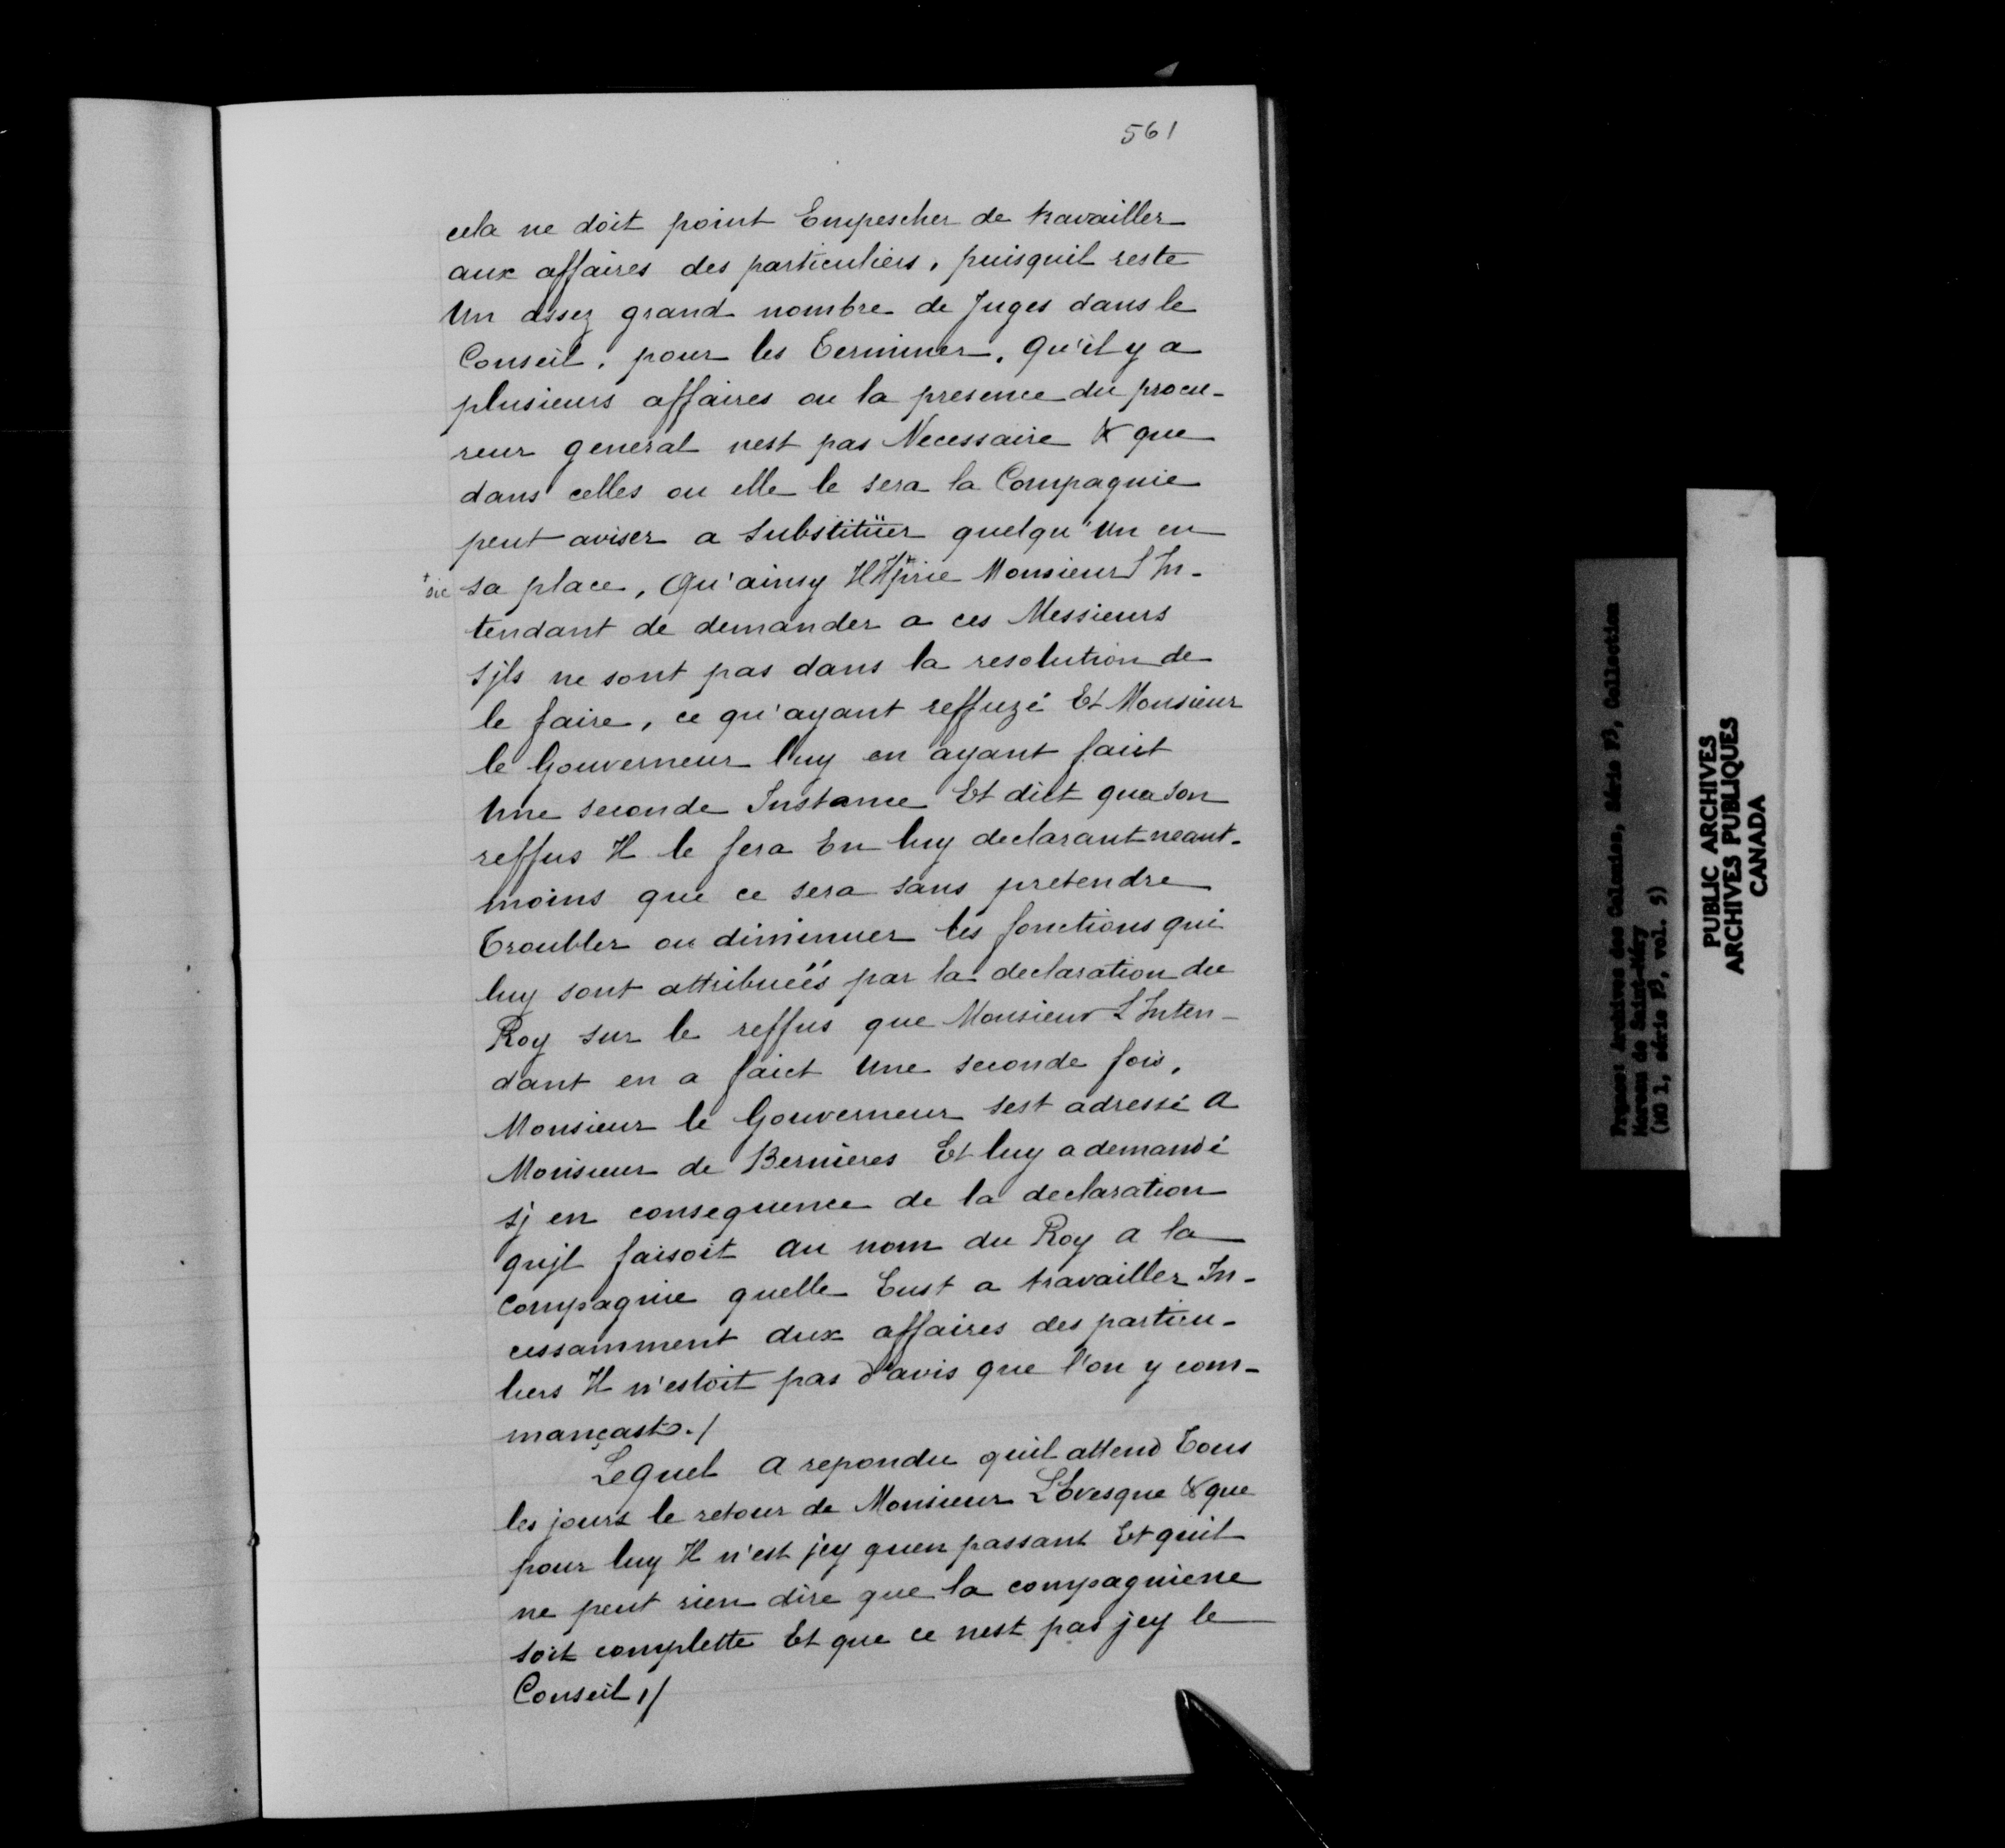 561
cela ne doit point Empescher de travailler
aux affaires des particuliers, puisquil reste
Un assez grand nombre de Juges dans le
Conseil, pour les Terminer, Qu'il y a
plusieurs affaires ou la presence du procu-
reur general nest pas Necessaire & que
dans celles ou elle le sera la Compagnie
peut aviser a Substitüer quelqu'Un en
+ sic sa place, Qu'ainsy Il prie Monsieur L'In-
tendant de demander a ces Messieurs
Sjls ne sont pas dans la resolution de
le faire, ce qu'ayant reffuzé Et Monsieur
le Gouverneur luy en ayant faict
Une seconde Instance Et dict qua son
reffus Il le fera En luy declarant neant-
moins que ce sera sans pretendre
Troubler ou diminuer les fonctions qui
luy sont attribuéés par la declaration du
Roy sur le reffus que Monsieur L'Inten-
dant en a faict Une seconde fois,
Monsieur le Gouverneur sest adressé A
Monsieur de Bernieres Et luy a demandé
sj en consequence de la declaration
qujl faisoit au nom du Roy a la
Compagnie quelle Eust a travailler In-
cessamment aux affaires des particu-
liers Il n'estoit pas d'avis que l'on y com-
mançast./
Lequel A repondu quil attend Tous
les jours le retour de Monsieur L'Evesque & que
pour luy Il n'est jcy quen passant Et quil
ne peut rien dire que la compagnie ne
soit complette Et que ce nest pas jcy le
Conseil,/
France: Archives des Colonies, Série F3, Collection
Moreau de Saint-Méry
(MG 1, série F3, vol. 5)
PUBLIC ARCHIVES
ARCHIVES PUBLIQUES
CANADA